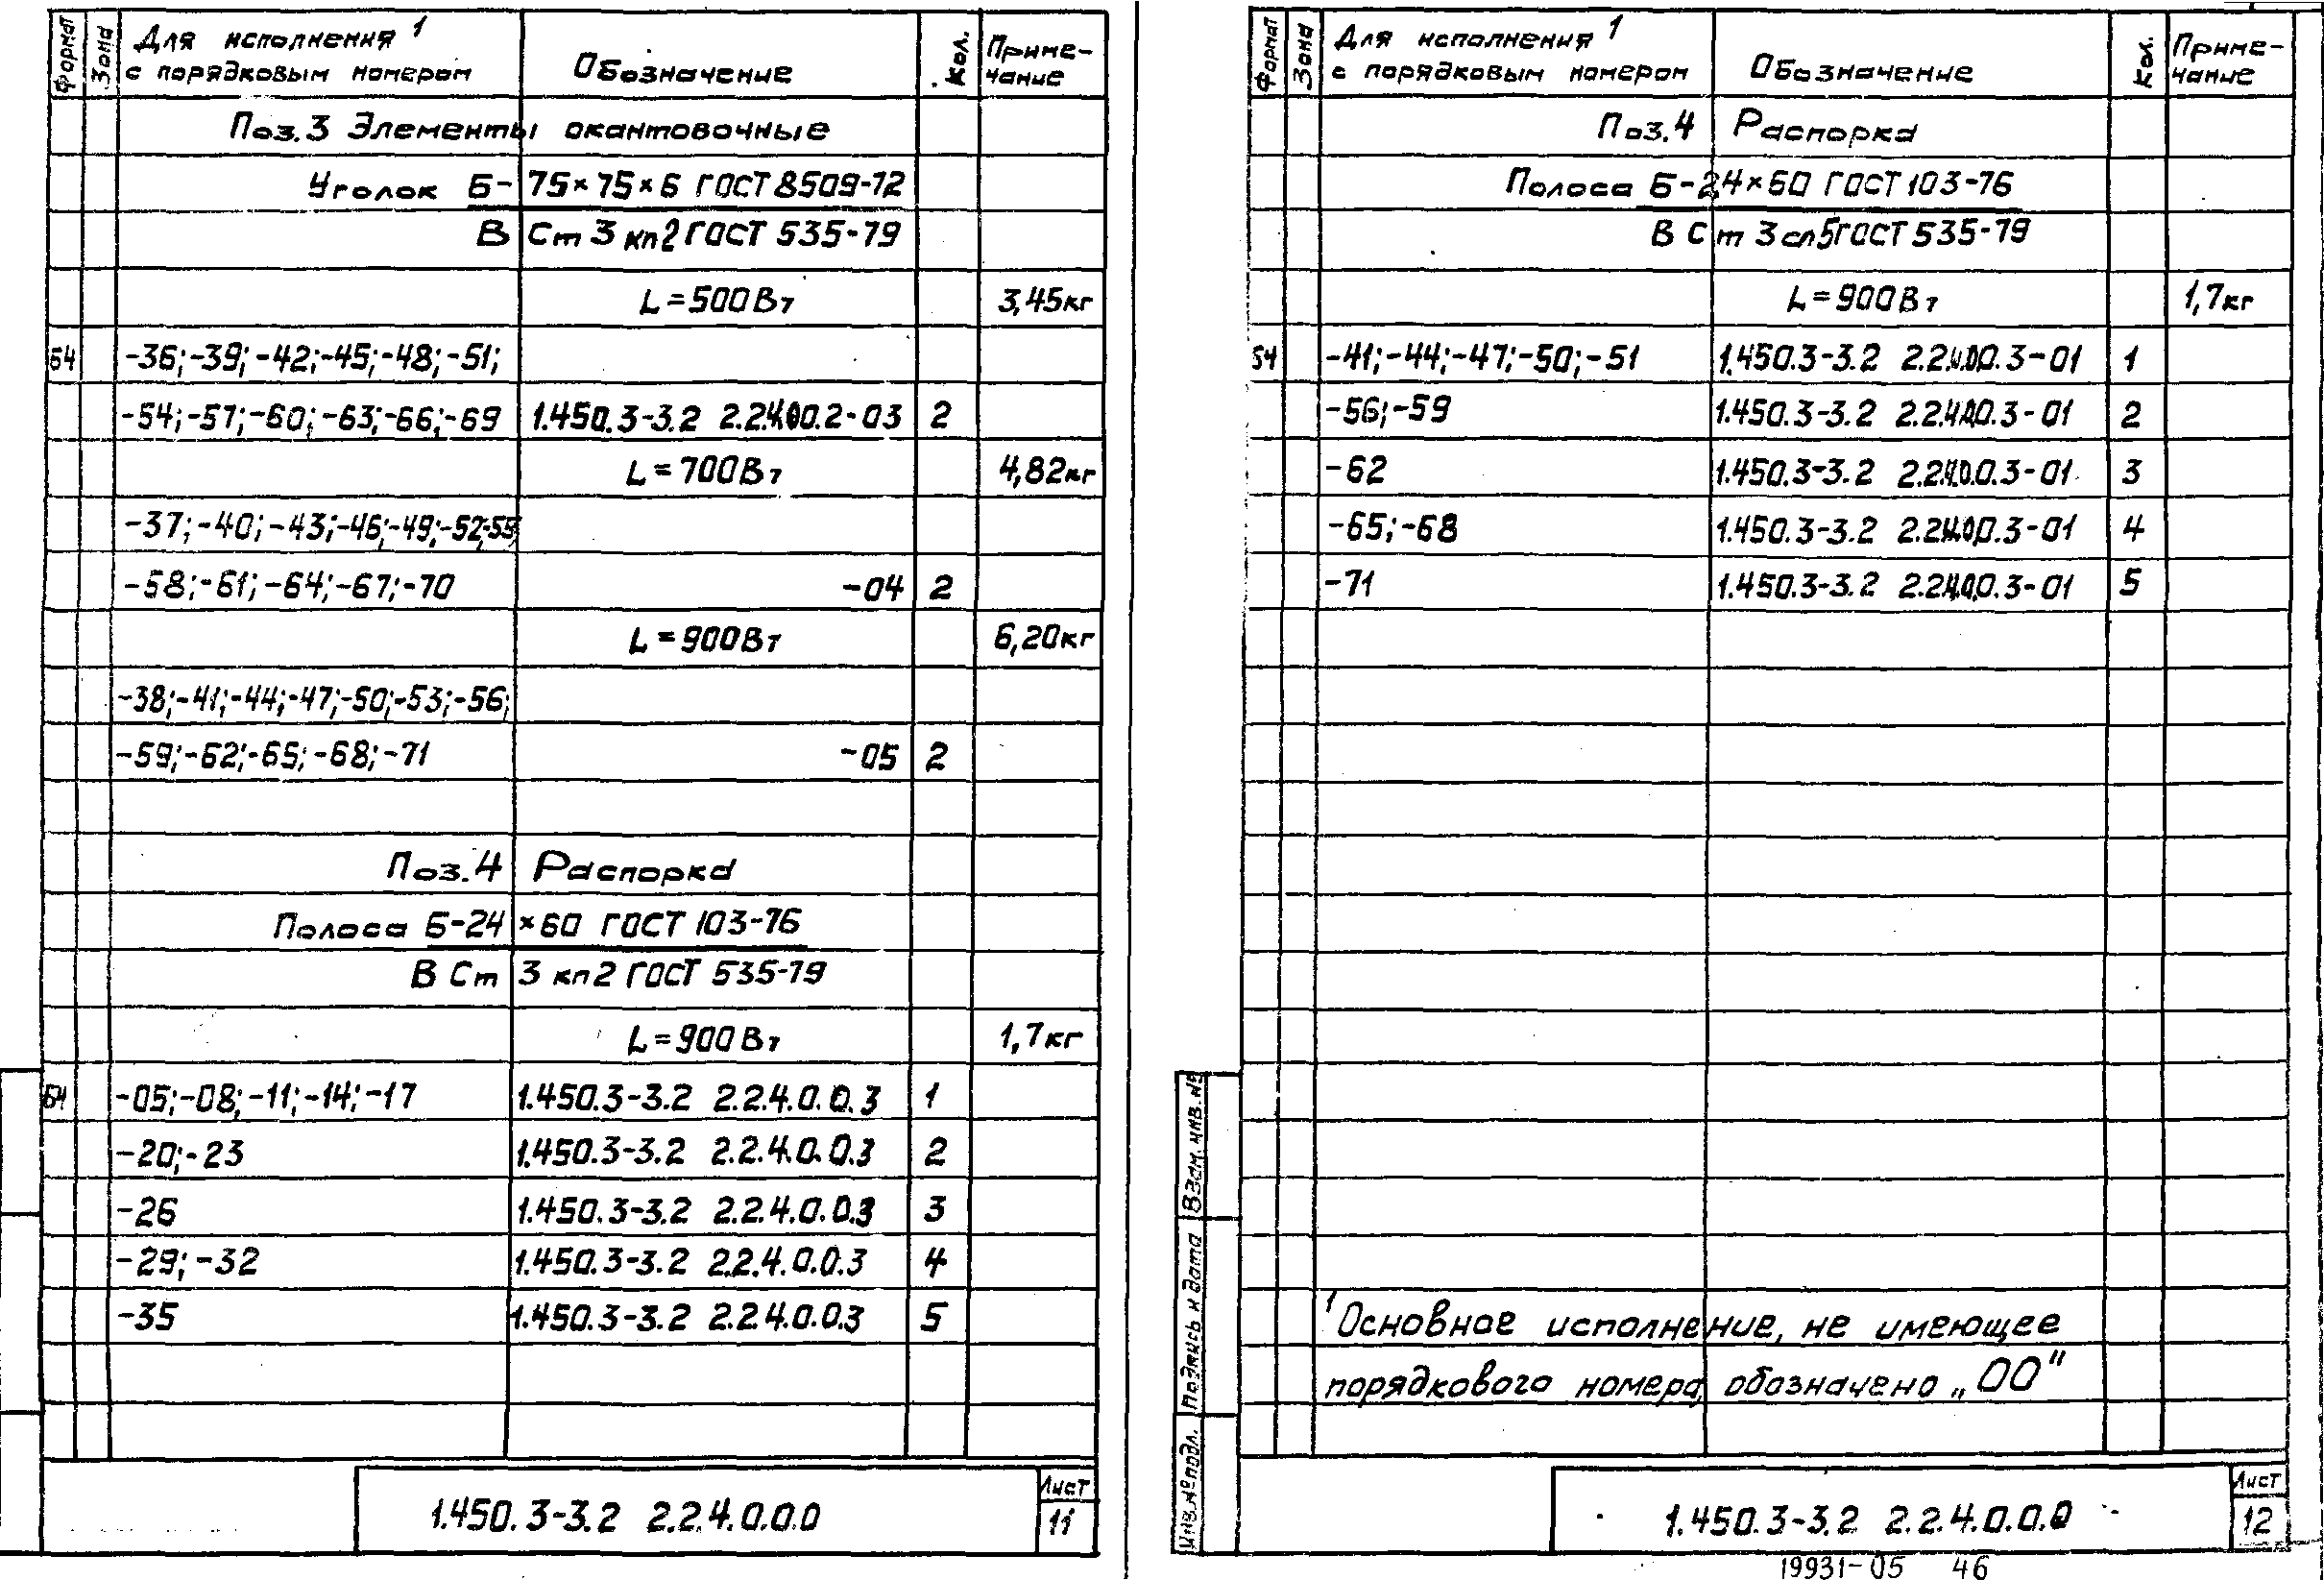 Формат Зона Для исполнения 1 с порядковым номером Обозначение Кол. Приме-чание
Поз.3 Элементы окантовочные
Уголок Б-75×75×6 ГОСТ 8509-72
В Ст 3 кп2 ГОСТ 535-79
L=500 Вт 3,45кг
Б4 -36;-39;-42;-45;-48;-51;
-54;-57;-60;-63;-66;-69 1.450.3-3.2 2.2.4.0.0.2-03 2
L=700 Вт 4,82кг
-37;-40;-43;-46;-49;-52;-55;
-58;-61;-64;-67;-70 -04 2
L=900 Вт 6,20кг
-38;-41;-44;-47;-50;-53;-56;
-59;-62;-65;-68;-71 -05 2
Поз.4 Распорка
Полоса Б-24×60 ГОСТ 103-76
В Ст 3 кп2 ГОСТ 535-79
L=900 Вт 1,7кг
Б4 -05;-08;-11;-14;-17 1.450.3-3.2 2.2.4.0.0.3 1
-20;-23 1.450.3-3.2 2.2.4.0.0.3 2
-26 1.450.3-3.2 2.2.4.0.0.3 3
-29;-32 1.450.3-3.2 2.2.4.0.0.3 4
-35 1.450.3-3.2 2.2.4.0.0.3 5
1.450.3-3.2 2.2.4.0.0.0 Лист 11
Формат Зона Для исполнения 1 с порядковым номером Обозначение Кол. Приме-чание
Поз.4 Распорка
Полоса Б-24×60 ГОСТ 103-76
В Ст 3 сп5 ГОСТ 535-79
L=900 Вт 1,7кг
Б4 -41;-44;-47;-50;-51 1.450.3-3.2 2.2.4.0.0.3-01 1
-56;-59 1.450.3-3.2 2.2.4.0.0.3-01 2
-62 1.450.3-3.2 2.2.4.0.0.3-01 3
-65;-68 1.450.3-3.2 2.2.4.0.0.3-01 4
-71 1.450.3-3.2 2.2.4.0.0.3-01 5
1 Основное исполнение, не имеющее
порядкового номера, обозначено „00"
Инв.№подл. Подпись и дата Взам.инв.№
1.450.3-3.2 2.2.4.0.0.0 Лист 12
19931-05 46